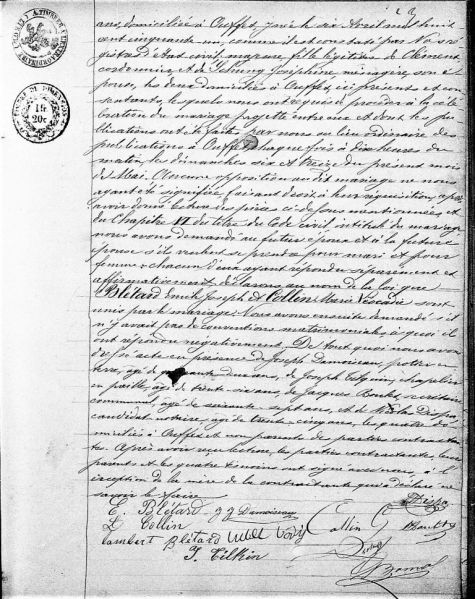 ans, domiciliée à Ouffet, née le six Avril mil huit
cent cinquante-un, comme il est constaté par nos re-
gistres d'État civil, majeure, fille légitime de Clément,
cordonnier, et de Joséphine, ménagère, son é-
pouse, les deux domiciliés à Ouffet, ici présents et con-
sentants, lesquels nous ont requis de procéder à la célé-
bration du mariage projeté entre eux et dont les pu-
blications ont été faites par nous au lieu ordinaire des
publications à Ouffet, chaque fois à dix heures du
matin, les dimanches six et treize du présent mois
de Mai. Aucune opposition au dit mariage ne nous
ayant été signifiée, faisant droit à leur réquisition, après
avoir donné lecture des pièces ci-dessus mentionnées et
du Chapitre VI du titre du Code civil intitulé du mariage,
nous avons demandé au futur époux et à la future
épouse s'ils veulent se prendre pour mari et pour
femme; chacun d'eux ayant répondu séparément et
affirmativement, déclarons au nom de la loi que
Blétard Emile Joseph et Collin Marie Léocadie sont
unis par le mariage. Nous avons ensuite demandé s'il
n'y avait pas de conventions matrimoniales, à quoi ils
ont répondu négativement. De tout quoi nous avons
dressé acte en présence de Joseph Damoiseau,
âgé de ans, de Joseph Tilkin, chapelier
en paille, âgé de trente-six ans, de Jacques
communal, âgé de soixante-sept ans, et de
candidat notaire, âgé de trente-cinq ans, les quatre do-
miciliés à Ouffet et non parents des parties contractan-
tes. Après avoir reçu lecture, les parties contractantes, leurs
parents et les quatre témoins ont signé avec nous, à l'
exception de la mère de la contractante qui a déclaré ne
savoir le faire.
E. Blétard - J J Damoiseau
L Collin Collin
Lambert Blétard
J. Tilkin